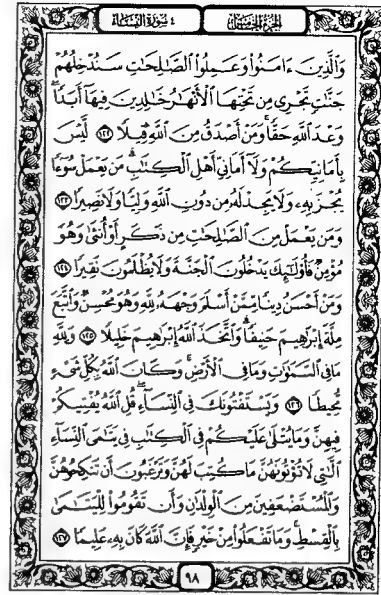 الجزء الخامس
٤ سورة النساء
وَٱلَّذِينَ ءَامَنُوا۟ وَعَمِلُوا۟ ٱلصَّـٰلِحَـٰتِ سَنُدْخِلُهُمْ
جَنَّـٰتٍ تَجْرِى مِن تَحْتِهَا ٱلْأَنْهَـٰرُ خَـٰلِدِينَ فِيهَآ أَبَدًا ۖ
وَعْدَ ٱللَّهِ حَقًّا ۚ وَمَنْ أَصْدَقُ مِنَ ٱللَّهِ قِيلًا ١٢٢ لَّيْسَ
بِأَمَانِيِّكُمْ وَلَآ أَمَانِىِّ أَهْلِ ٱلْكِتَـٰبِ ۗ مَن يَعْمَلْ سُوٓءًا
يُجْزَ بِهِۦ وَلَا يَجِدْ لَهُۥ مِن دُونِ ٱللَّهِ وَلِيًّا وَلَا نَصِيرًا ١٢٣
وَمَن يَعْمَلْ مِنَ ٱلصَّـٰلِحَـٰتِ مِن ذَكَرٍ أَوْ أُنثَىٰ وَهُوَ
مُؤْمِنٌ فَأُو۟لَـٰٓئِكَ يَدْخُلُونَ ٱلْجَنَّةَ وَلَا يُظْلَمُونَ نَقِيرًا ١٢٤
وَمَنْ أَحْسَنُ دِينًا مِّمَّنْ أَسْلَمَ وَجْهَهُۥ لِلَّهِ وَهُوَ مُحْسِنٌ وَٱتَّبَعَ
مِلَّةَ إِبْرَٰهِيمَ حَنِيفًا ۗ وَٱتَّخَذَ ٱللَّهُ إِبْرَٰهِيمَ خَلِيلًا ١٢٥ وَلِلَّهِ
مَا فِى ٱلسَّمَـٰوَٰتِ وَمَا فِى ٱلْأَرْضِ ۚ وَكَانَ ٱللَّهُ بِكُلِّ شَىْءٍ
مُّحِيطًا ١٢٦ وَيَسْتَفْتُونَكَ فِى ٱلنِّسَآءِ ۖ قُلِ ٱللَّهُ يُفْتِيكُمْ
فِيهِنَّ وَمَا يُتْلَىٰ عَلَيْكُمْ فِى ٱلْكِتَـٰبِ فِى يَتَـٰمَى ٱلنِّسَآءِ
ٱلَّـٰتِى لَا تُؤْتُونَهُنَّ مَا كُتِبَ لَهُنَّ وَتَرْغَبُونَ أَن تَنكِحُوهُنَّ
وَٱلْمُسْتَضْعَفِينَ مِنَ ٱلْوِلْدَٰنِ وَأَن تَقُومُوا۟ لِلْيَتَـٰمَىٰ
بِٱلْقِسْطِ ۚ وَمَا تَفْعَلُوا۟ مِنْ خَيْرٍ فَإِنَّ ٱللَّهَ كَانَ بِهِۦ عَلِيمًا ١٢٧
٩٨